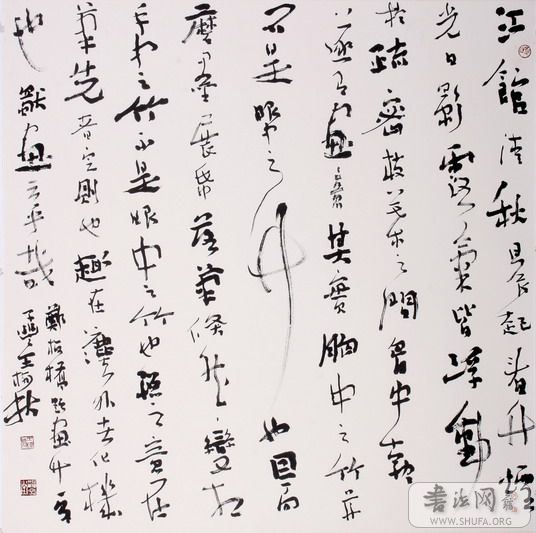 江館清秋晨起看竹煙
光日影露氣皆浮動
於疏密枝葉之間胸中勃
〻遂有畫意其實胸中之竹并
不是眼中之竹也因而
磨墨展紙落筆倏作變相
手中之竹不是眼中之竹也總之意在
筆先者定則也趣在法外者化機
也獨畫云乎哉
鄭板橋題畫竹
书法网
WWW.SHUFA.ORG